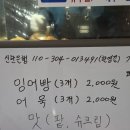 신한은행 110-304-013491(한영진)
잉어빵 (3개) 2,000원
어묵 (3개) 2,000원
맛 (팥, 슈크림)